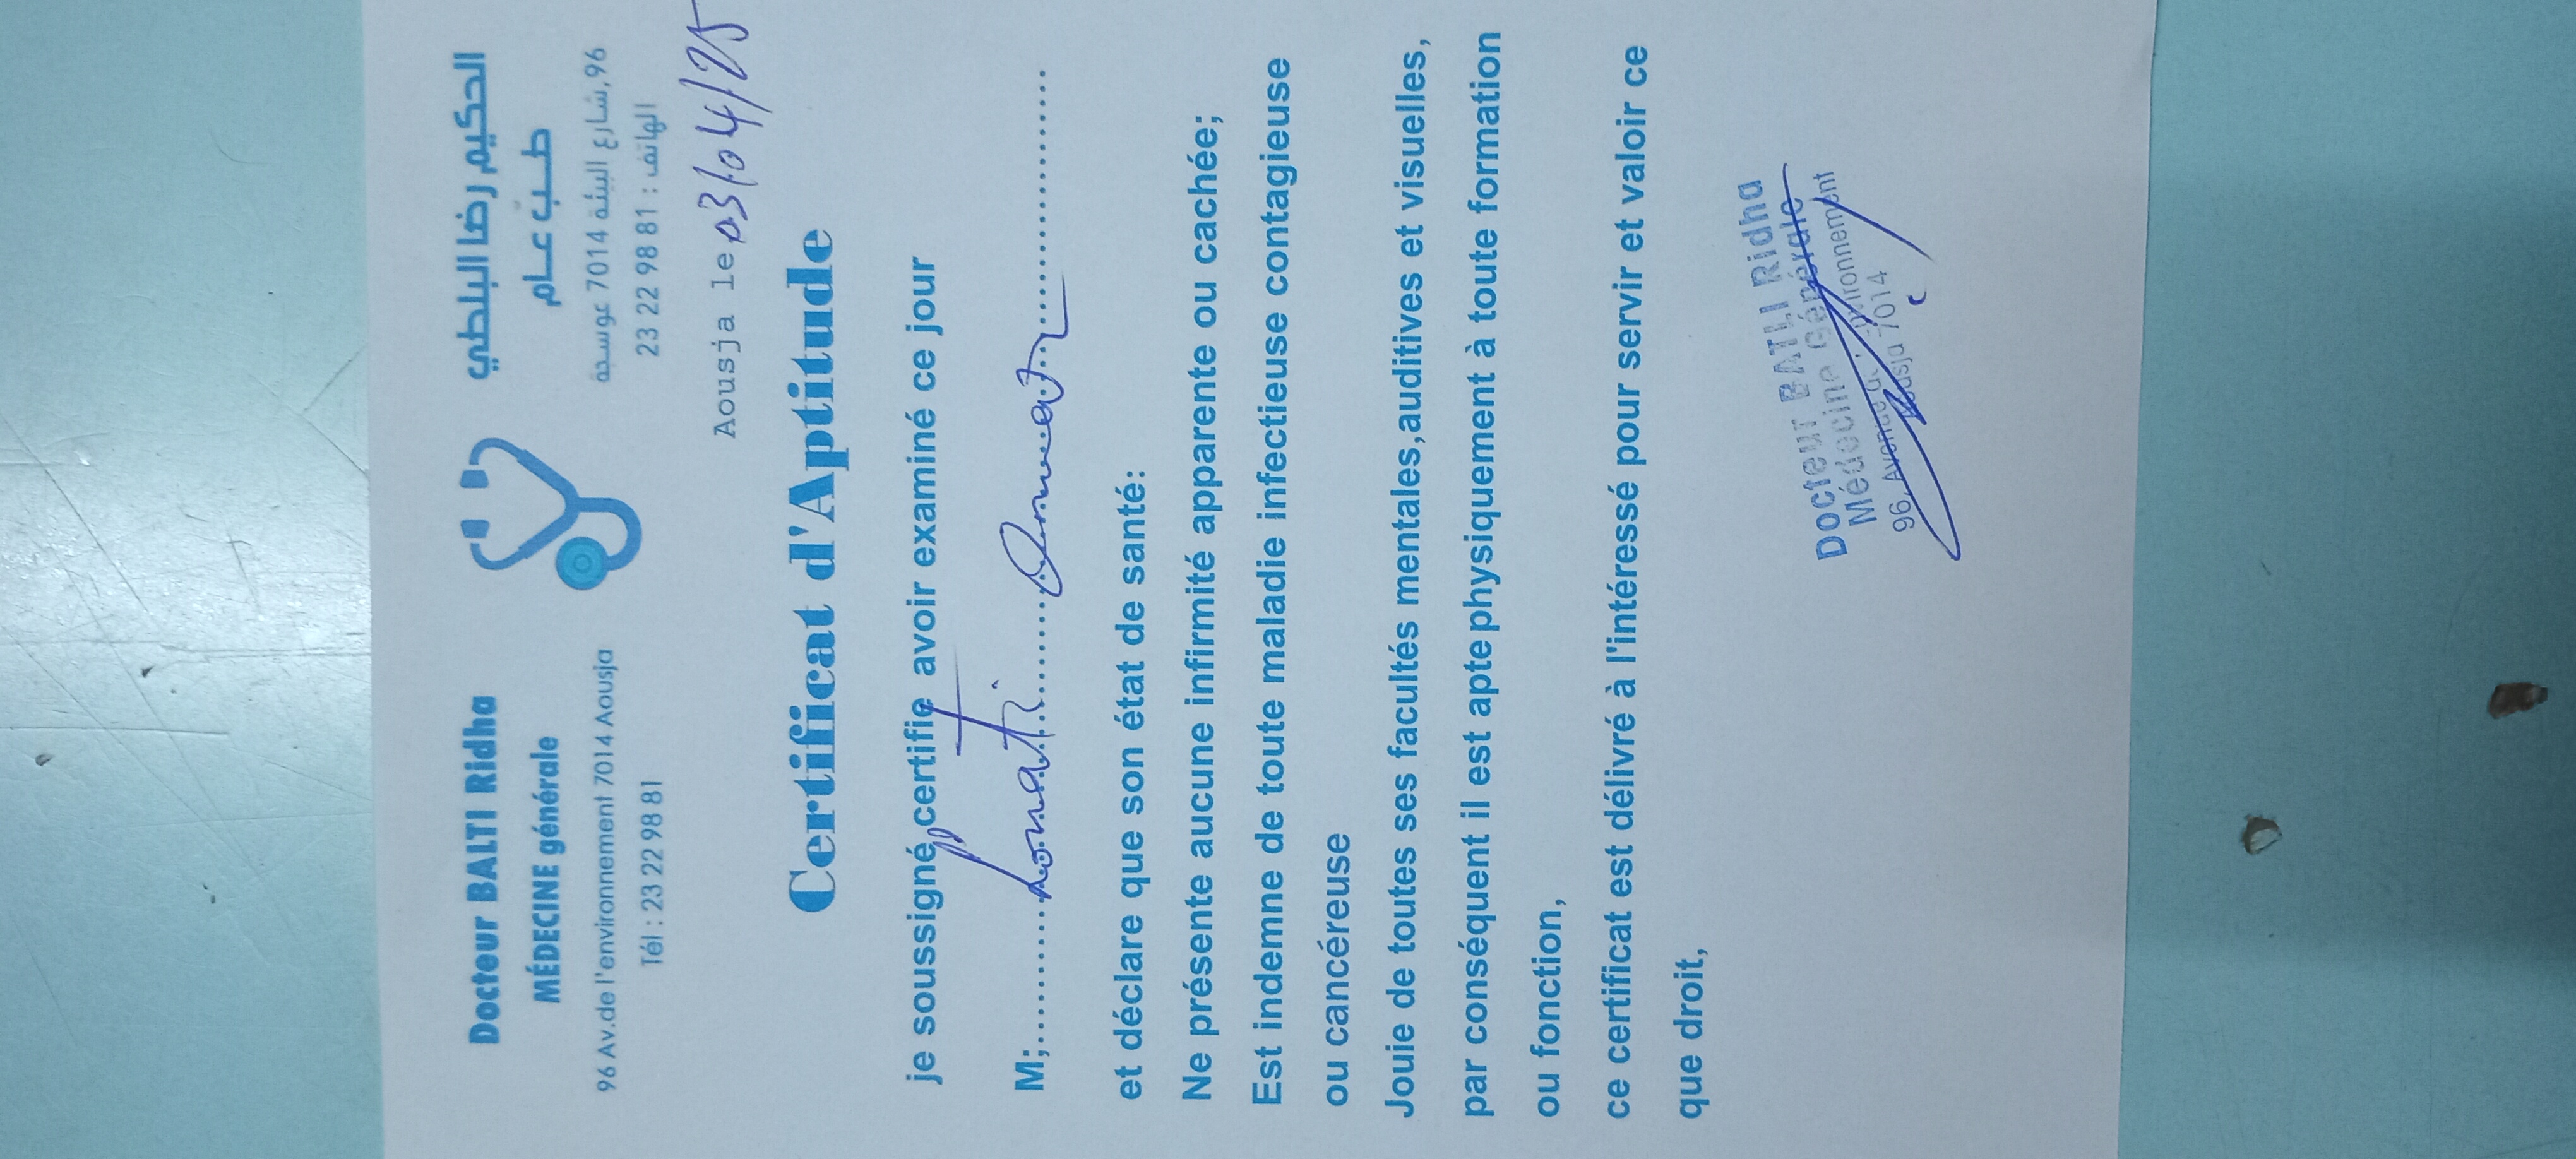 Docteur BALTI Ridha
MÉDECINE générale
96 Av.de l'environnement 7014 Aousja
Tél : 23 22 98 81
الحكيم رضا البلطي
طب عام
96,شارع البيئة 7014 عوسجة
الهاتف : 81 98 22 23
Aousja le 03/04/25
Certificat d'Aptitude
je soussigné,certifie avoir examiné ce jour
M;
et déclare que son état de santé:
Ne présente aucune infirmité apparente ou cachée;
Est indemne de toute maladie infectieuse contagieuse
ou cancéreuse
Jouie de toutes ses facultés mentales,auditives et visuelles,
par conséquent il est apte physiquement à toute formation
ou fonction,
ce certificat est délivré à l'intéressé pour servir et valoir ce
que droit,
Docteur BALTI Ridha
Médecine Générale
96, Avenue de l'environnement
Aousja 7014